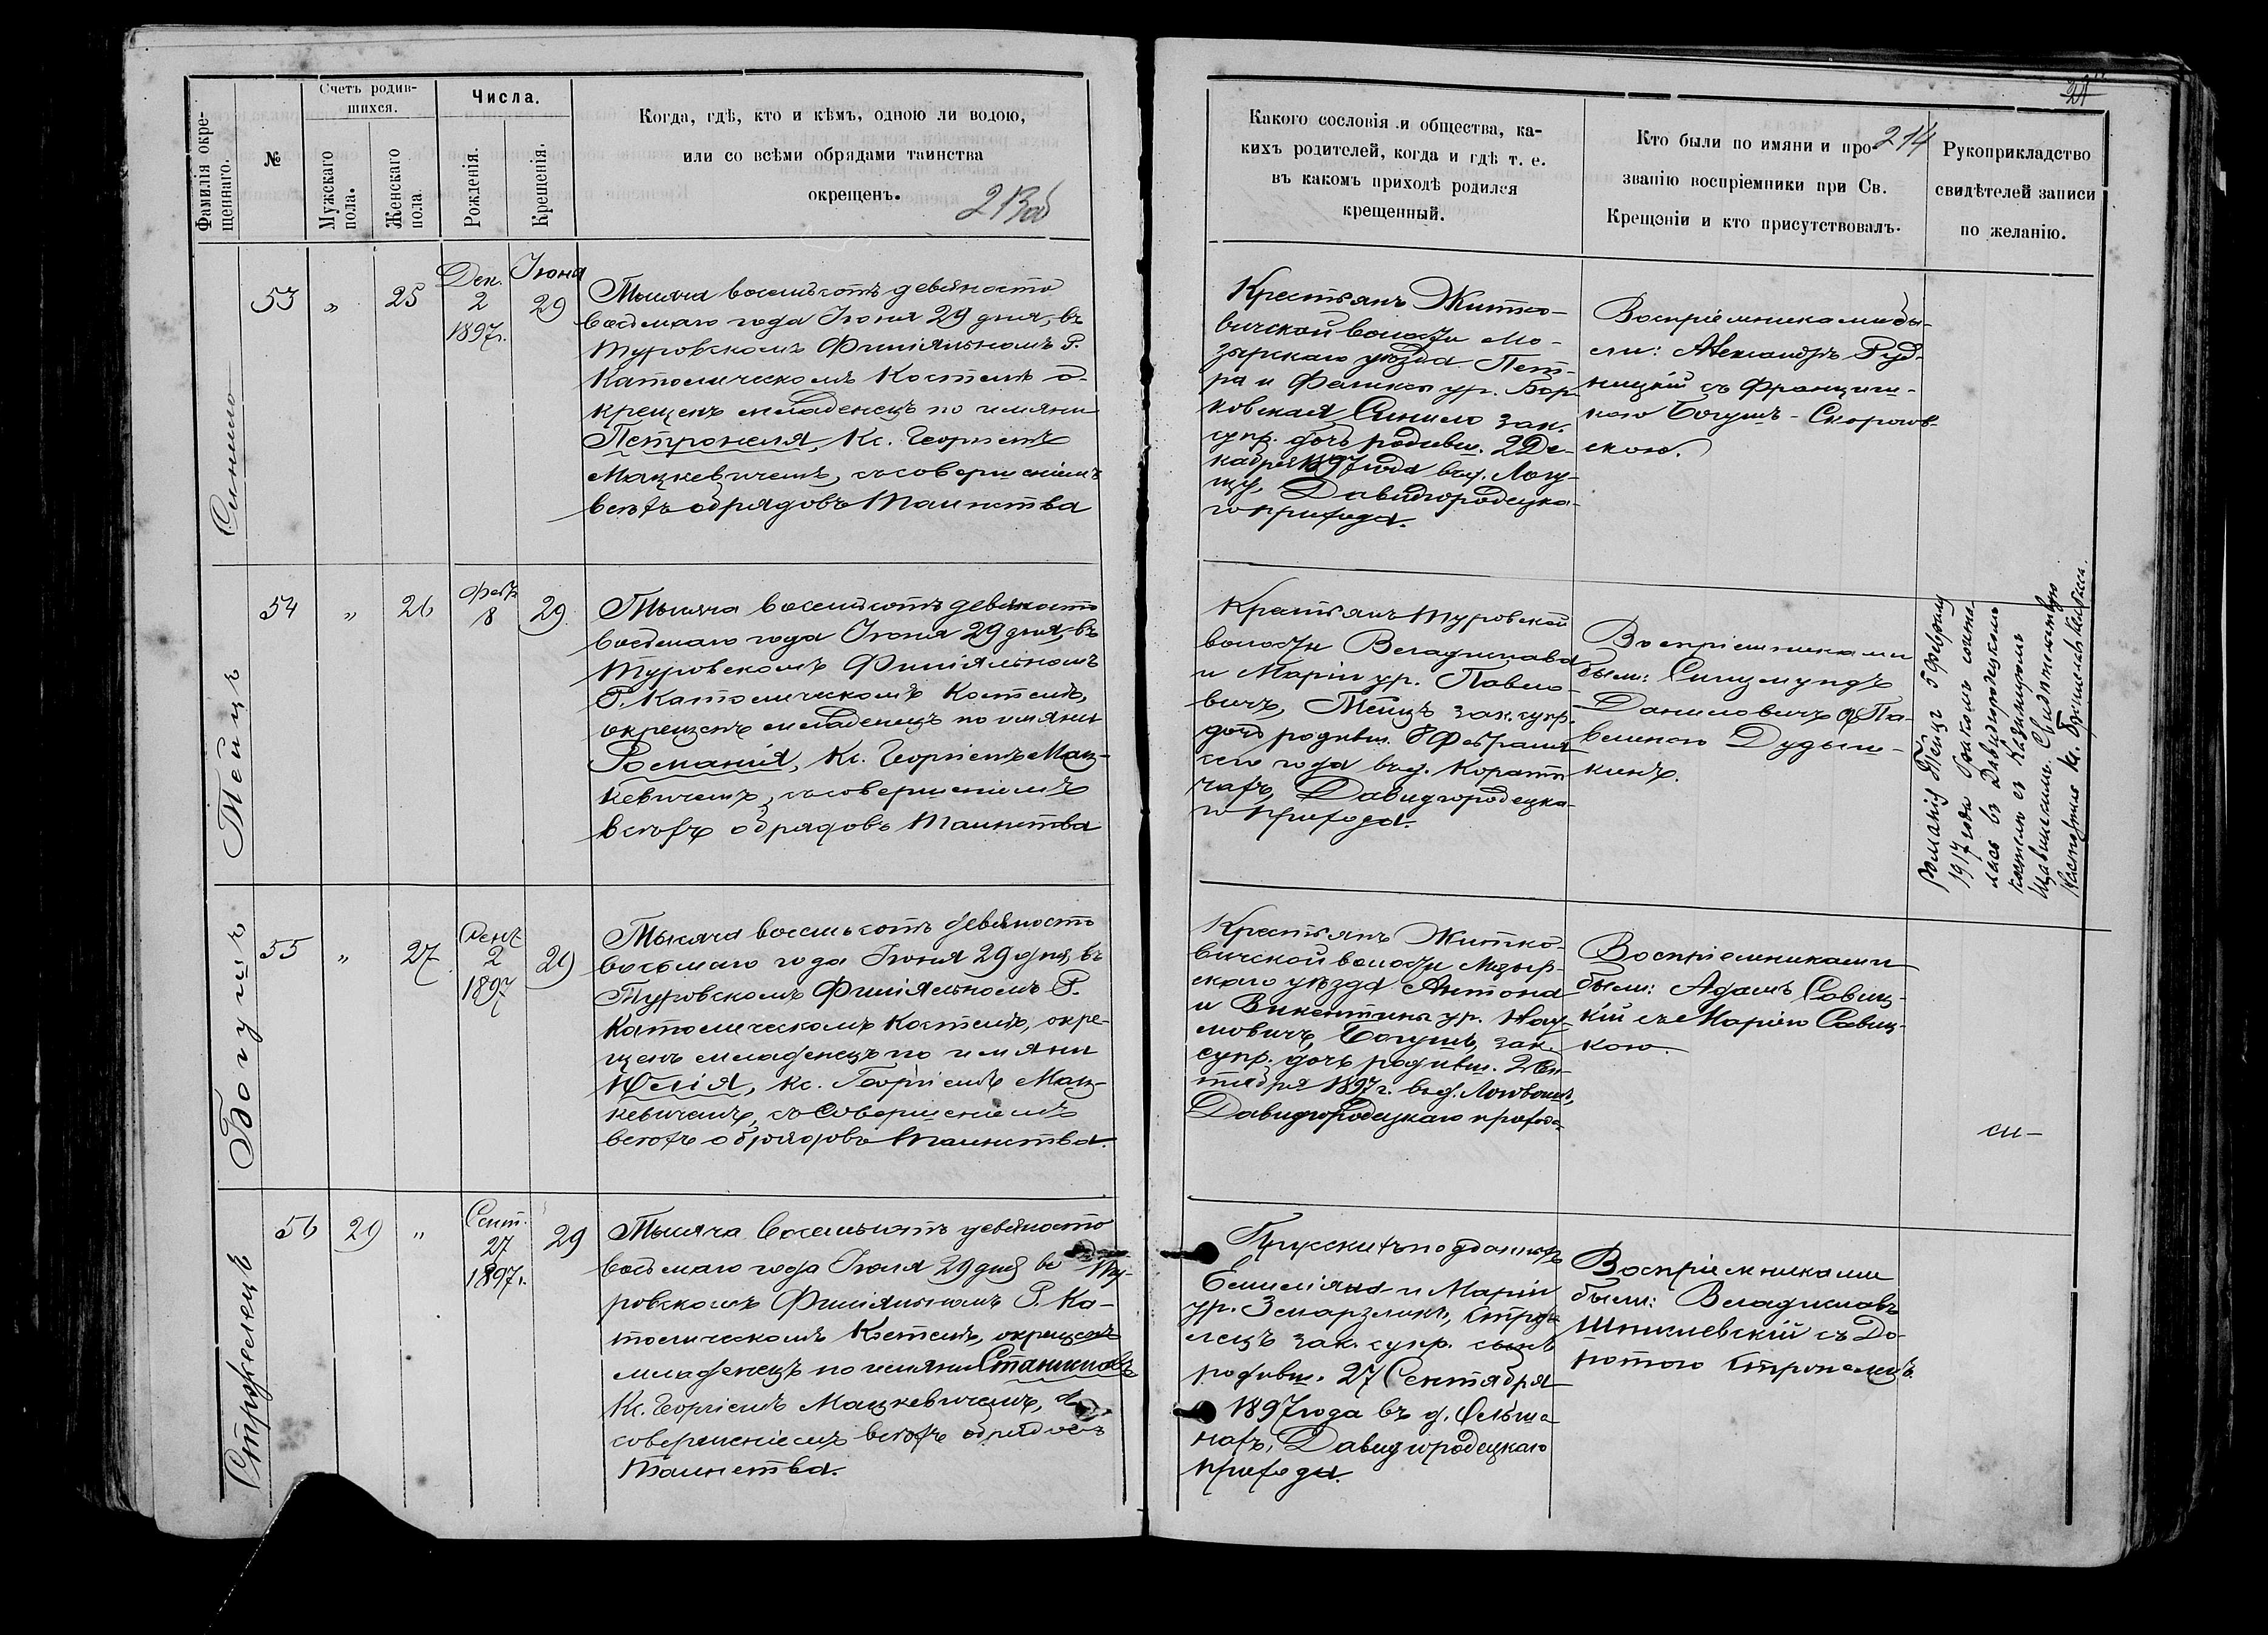 Фамилія окре-
щеннаго.
№
Счетъ родив-
шихся.
Мужскаго
пола.
Женскаго
пола
Числа.
Рожденія.
Крещенія.
Когда, гдѣ, кто и кѣмъ, одною ли водою,
или со всѣми обрядами таинства
окрещенъ.
213об
53
"
25
Дек.
2
1897г.
Іюня
29
Тысяча восемьсотъ девяносто
восьмаго года Іюня 29 дня, въ
Туровскомъ Филіяльномъ Р.
Католическомъ Костелѣ о-
крещенъ младенецъ по имяни
Петронеля, Кс. Георгіемъ
Мацкевичемъ, съ совершеніемъ
всѣхъ обрядовъ Таинства
Тейцъ
54
"
26
Февр
8
29
Тысяча восемьсотъ девяносто
восьмаго года Іюня 29 дня, въ
Туровскомъ Филіяльномъ
Р. Католическомъ Костелѣ,
окрещенъ младенецъ по имяни
Романія, Кс. Георгіемъ Мац-
кевичемъ, съ совершеніемъ
всѣхъ обрядовъ Таинства
Богушъ
55
"
27
2
1897
29
Тысяча восемьсотъ девяносто
восьмаго года Іюня 29 дня, въ
Туровскомъ Филіяльномъ Р.
Католическомъ Костелѣ, окре-
щенъ младенецъ по имяни
Юлія, Кс. Георгіемъ Мац-
кевичемъ, съ совершеніемъ
всѣхъ обрядовъ Таинства.
56
29
"
Сент.
27
1897г.
29
Тысяча восемьсотъ девяносто
восьмаго года Іюля 29 дня въ Ту-
ровскомъ Филіяльномъ Р. Ка-
толическомъ Костелѣ, окрещенъ
младенецъ по имяни Станиславъ
Кс. Георгіемъ Мацкевичемъ, съ
совершеніемъ всѣхъ обрядовъ
Таинства.
Какого сословія и общества, ка-
кихъ родителей, когда и гдѣ т. е.
въ какомъ приходѣ родился
крещенный.
Кто были по имяни и про-
званію воспріемники при Св.
Крещеніи и кто присутствовалъ.
214
Рукоприкладство
свидѣтелей записи
по желанію.
Крестьянъ Житко-
вичской волости Мо-
зырскаго уѣзда Пет-
ра и Феликсы ур. Бор-
ковская зак.
супр. дочь родивш. 2 Де-
кабря 1897 года въ д.
Давидгородецка-
го прихода.
Воспріемниками бы-
ли: Александръ Руд-
ницкій съ Францишк-
кою Богушъ-
скою.
Крестьянъ Туровской
волости Владислава
и Маріи ур. Павло-
вичъ, Тейцъ зак. супр.
дочь родивш. 8 Февраля
сего года въ д.
Давидгородецка-
го прихода.
Воспріемниками
были: Сигизмундъ
Даниловичъ съ Па-
влиною
Романія Тейцъ 5 Февраля
1917 года бракомъ сочета-
лась въ Давидгородецкомъ
костелѣ съ Казиміромъ
Крестьянъ Житко-
вичской волости Мозыр-
скаго уѣзда Антона
и Викентины ур. Нау-
мовичъ, Богушъ, зак.
супр. дочь родивш. 2
1897 г. въ д.
Давидгородецкаго прихода
Воспріемниками
были: Адамъ Савиц-
кій съ Маріею Савиц-
кою.
Прусскихъ подданныхъ
Емиліяна и Маріи
ур.
зак. супр. сынъ
родивш. 27 Сентября
1897 года въ д. Ольша-
нахъ, Давидгородецкаго
прихода.
Воспріемниками
были: Владиславъ
съ До-
ротою